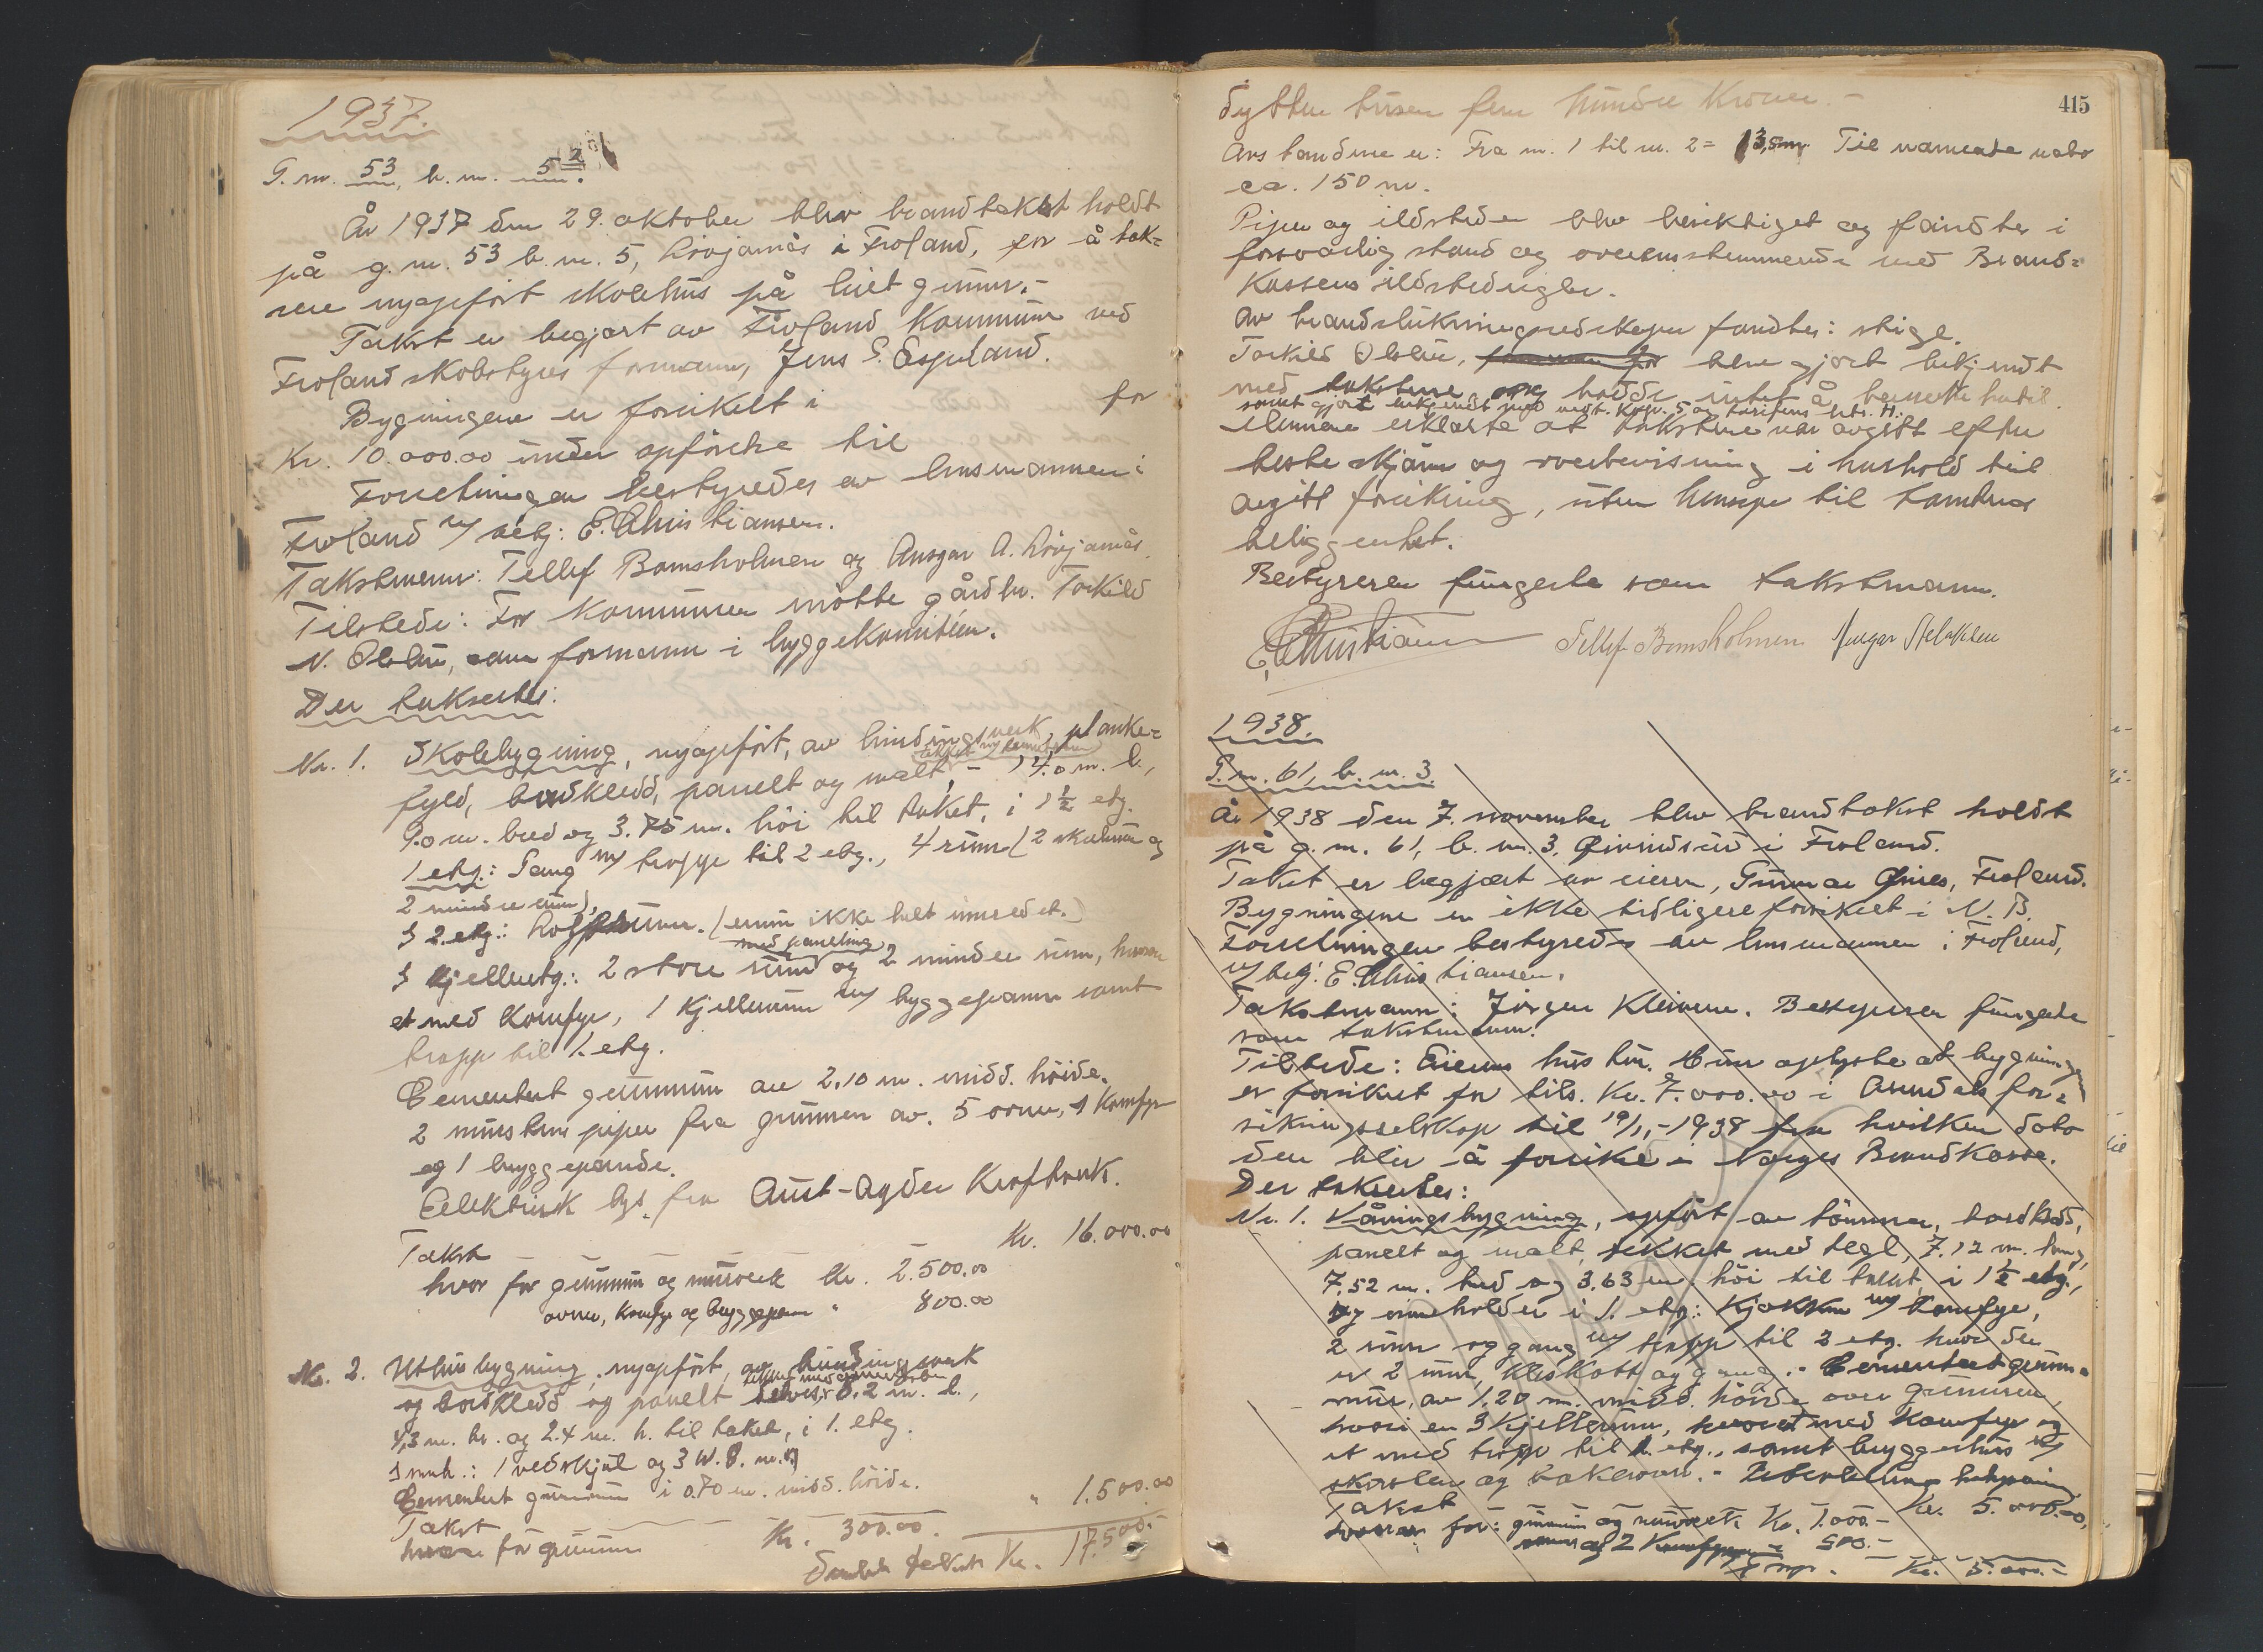 1937.
G. nr. 53, b. nr. 5.
År 1937 den 29. oktober blev brandtakst holdt
på g. nr. 53 b. nr. 5, Lövjamås i Froland, for å tak=
sere nyopfört skolehus på leiet grunn.-
Takst er begjært av Froland Kommune ved
Froland skolestyres formann, Jens S. Espeland.
Bygningene er forsikret i for
Kr. 10.000.00 under opförelse til
Forretningen bestyredes av lensmannen i
Froland w/ betj: E. Christiansen.
Takstmenn: Tellef Bomsholmen og Ansgar A. Lövjamås.
Tilstede: For Kommunen mötte gårdbr. Torkild
N. Olstad, som formann i byggekomiteen.
Der takseres:
Nr. 1. Skolebygning, nyopfört, av bindingsverk, planke=
fyld, bordkledd, panelt og malt, - 14.0 m. l.,
9.0 m. bred og 3.75 m. höi til taket, i 1½ etg.
1 etg.: Gang m/ trappe til 2 etg., 4 rum (2 skolerum og
2 mindre rum),
I 2. etg.: Loftrum. (ennu ikke helt innredet.)
med paneling
I kjelleretg.: 2 store rum og 2 mindre rum, hvorav
et med komfyr, 1 kjellerrum m/ bryggepanne samt
trapp til 1. etg.
Cementert grunnmur av 2.10 m. midd. höide.
2 murstens piper fra grunnen av. 5 ovner, 1 komfyr
og 1 bryggepande.
Eelektrisk lys fra Aust-Agder Kraftverk.
Takst Kr. 16.000.00
hvor for grunnmur og murverk Kr. 2.500.00
ovner, komfyr og bryggepanne " 800.00
Nr. 2. Uthusbygning, nyopfört, av bindingsverk
og bordkledd og panelt 8.2 m. l.,
4,3 m. br. og 2.4 m. h. til taket, i 1. etg.
I innh.: 1 vedskjul og 3 W.C. m.v.
Cementert grunnmur i 0.70 m. midd. höide.
Takst " 1.500.00
hvorav for grunnmur Kr. 300.00.
Samlet takst Kr. 17.500.-
415
Sytten tusen fem hundre Kroner.-
Avstandene er: Fra nr. 1 til nr. 2 = 13,5 m. Til nærmeste nabo
ca. 150 m.
Piper og ildsteder blev besiktiget og fandtes i
forsvarlig stand og overensstemmende med Brand=
kassens ildstedregler.
Av brandslukningsredskaper fandtes: stige.
Torkild Olstad, blev gjort bekjendt
med takstene og hadde intet å bemerke hertil.
samt gjort bekjendt med vedt. Kap. 5 og tarifens litr. H.
Mennene erklærte at takstene var avgitt efter
beste skjönn og overbevisning i henhold til
avgitt forsikring, uten hensyn til tomtens
beliggenhet.
Bestyreren fungerte som takstmann.
E. Christiansen Tellef Bomsholmen Ansgar
1938.
G. nr. 61, b. nr. 3.
År 1938 den 7. november blev brandtakst holdt
på g. nr. 61, b. nr. 3, i Froland.
Takst er begjært av eieren, Gunnar Froland.
Bygningene er ikke tidligere forsikret i N. B.
Forretningen bestyredes av lensmannen i Froland,
w/ betj: E. Christiansen.
Takstmann: Jörgen Kleivene. Bestyreren fungerte
som takstmann.
Tilstede: Eierens hustru. Hun oplyste at bygningen
er forsikret for tils. Kr. 7.000.00 i Arendals for=
sikringsselskap til 19/1,-1938 fra hvilken dato
den blir å forsikre i Norges Brandkasse.
Der takseres:
Nr. 1. Våningsbygning, opfört av tömmer, bordkledd,
panelt og malt, tekket med tegl, 7.12 m. lang,
7.52 m. bred og 3.63 m. höi til taket, i 1½ etg.,
og inneholder i 1. etg: Kjökken m/ komfyr,
2 rum og gang m/ trapp til 2 etg. hvor der
er 2 rum, kleskott og gang.- Cementert grunn=
mur, av 1.20 m. midd. höide over grunnen,
hvori er 3 kjellerrum, hvorav et med komfyr og
et med trapp til 1. etg., samt bryggerhus m/
skorsten og bakerovn.-
Takst Kr. 5.000.00,
hvorav for: grunnmur og murverk Kr. 1.000.-
ovner og 2 komfyrer " 500.-
Kr. 5.000.-